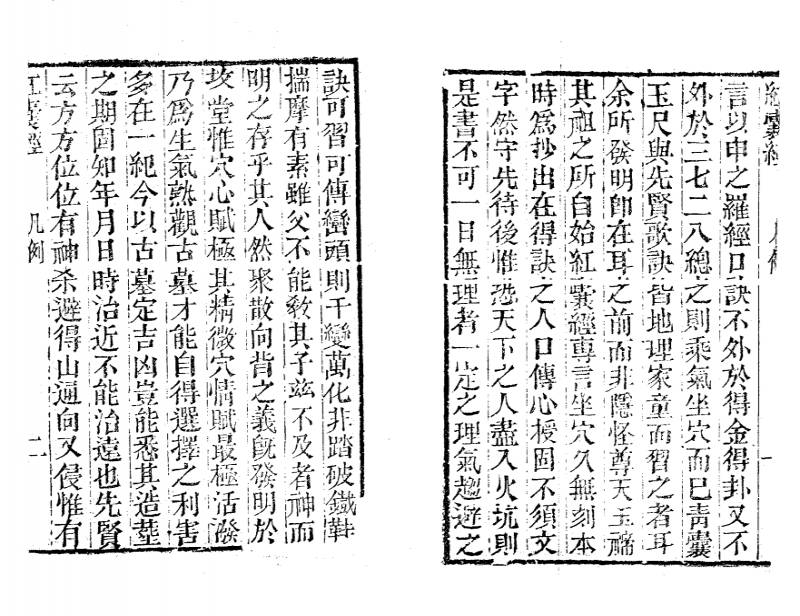 紅囊經 凡例 一
言以申之羅經口訣不外於得金得卦又不
外於三七二八總之則乘氣坐穴而已靑囊
玉尺與先賢歌訣皆地理家童而習之者耳
余所發明卽在耳之前而非隱怪尊天玉禘
其祖之所自始紅囊經專言坐穴久無刻本
時爲抄出在得訣之人口傳心授固不須文
字然守先待後惟恐天下之人盡入火坑則
是書不可一日無理者一定之理氣趨避之
訣可習可傳巒頭則千變萬化非踏破鐵鞋
揣摩有素雖父不能敎其子玆不及者神而
明之存乎其人然聚散向背之義旣發明於
坟堂惟穴心賦極其精微穴情賦最極活潑
乃爲生氣熟觀古墓才能自得選擇之利害
多在一紀今以古墓定吉凶豈能悉其造塟
之期固知年月日時治近不能治遠也先賢
云方方位位有神杀避得山逼向又侵惟有
紅囊經 凡例 二